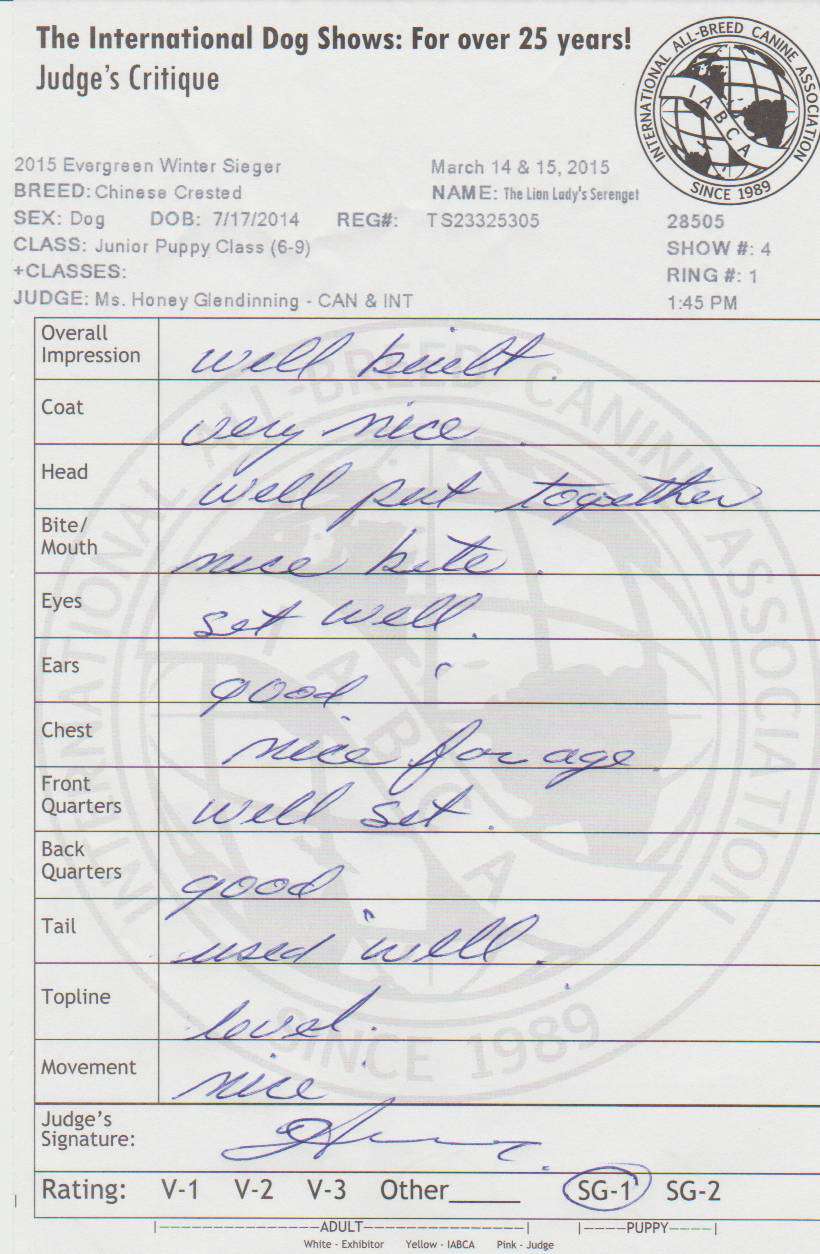 The International Dog Shows: For over 25 years!
Judge's Critique
INTERNATIONAL ALL-BREED CANINE ASSOCIATION
IABCA
SINCE 1989
2015 Evergreen Winter Sieger March 14 & 15, 2015
BREED: Chinese Crested NAME: The Lion Lady's Serenget
SEX: Dog DOB: 7/17/2014 REG#: TS23325305 28505
CLASS: Junior Puppy Class (6-9) SHOW #: 4
+CLASSES: RING #: 1
JUDGE: Ms. Honey Glendinning - CAN & INT 1:45 PM
Overall
Impression well built.
Coat very nice.
Head well put together
Bite/
Mouth nice bite.
Eyes set well.
Ears good
Chest nice for age.
Front
Quarters well set.
Back
Quarters good
Tail used well.
Topline level.
Movement nice
Judge's
Signature:
Rating: V-1 V-2 V-3 Other_____ SG-1 SG-2
ADULT PUPPY
White - Exhibitor Yellow - IABCA Pink - Judge
INTERNATIONAL ALL-BREED CANINE ASSOCIATION
IABCA
SINCE 1989